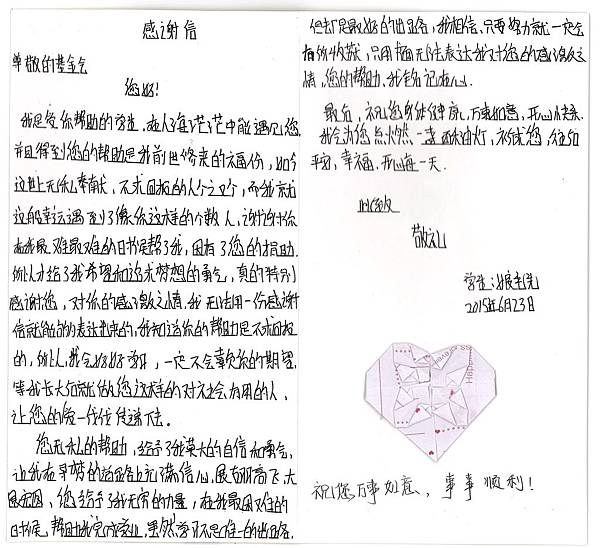 感谢信
尊敬的基金会
您好!
我是受你帮助的学生,在人海茫茫中能遇见您
并且得到您的帮助是我前世修来的福份,如今
这世上无私奉献,不求回报的人少之又少,而我就
这般幸运遇到了像你这样的少数人,谢谢你
在我最难最难的日子里帮了我,因有了您的捐助
所以才给了我希望和追求梦想的勇气,真的特别
感谢您,对你的感激之情,我无法用一份感谢
信就能够的表达出来的,我知道你的帮助是不求回报
的,所以,我会好好学习,一定不会辜负你的期望,
等我长大后就做您这样的对社会有用的人,
让您的爱一代代传递下去。
您无私的帮助,给予了我莫大的自信和勇气,
让我在寻梦的道路上充满信心,展翅高飞,大
展宏图、您给予了我无穷的力量,在我最困难的
时候,帮助我完成学业,虽然学习不是唯一的出路,
但却是最好的出路,我相信,只要努力就一定会
有所收获,只用书面无法表达我对您的感激之
情,您的帮助,我铭记在心。
最后,祝您身体健康,万事如意,开心快乐.
我会为您点燃一盏酥油灯,祈祷您,往后
平安,幸福,开心每一天.
此致
敬礼
学生:
2015年6月23日
祝您万事如意,事事顺利!